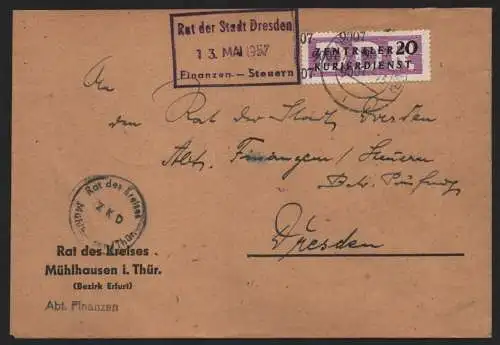 Rat der Stadt Dresden
13. MAI 1957
Finanzen — Steuern
9007
ZENTRALER 20
KURIERDIENST
9007
An
den Rat der Stadt Dresden
Abt. Finanzen/Steuern
Betr. Prüfung
Dresden
Rat des Kreises
ZKD
Mühlh Thür.
Rat des Kreises
Mühlhausen i. Thür.
(Bezirk Erfurt)
Abt. Finanzen